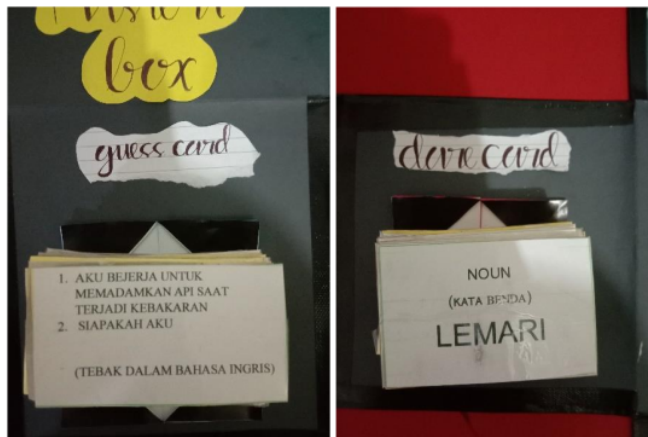 box
guess card
1. AKU BEJERJA UNTUK
MEMADAMKAN API SAAT
TERJADI KEBAKARAN
2. SIAPAKAH AKU
(TEBAK DALAM BAHASA INGRIS)
dare card
NOUN
(KATA BENDA)
LEMARI